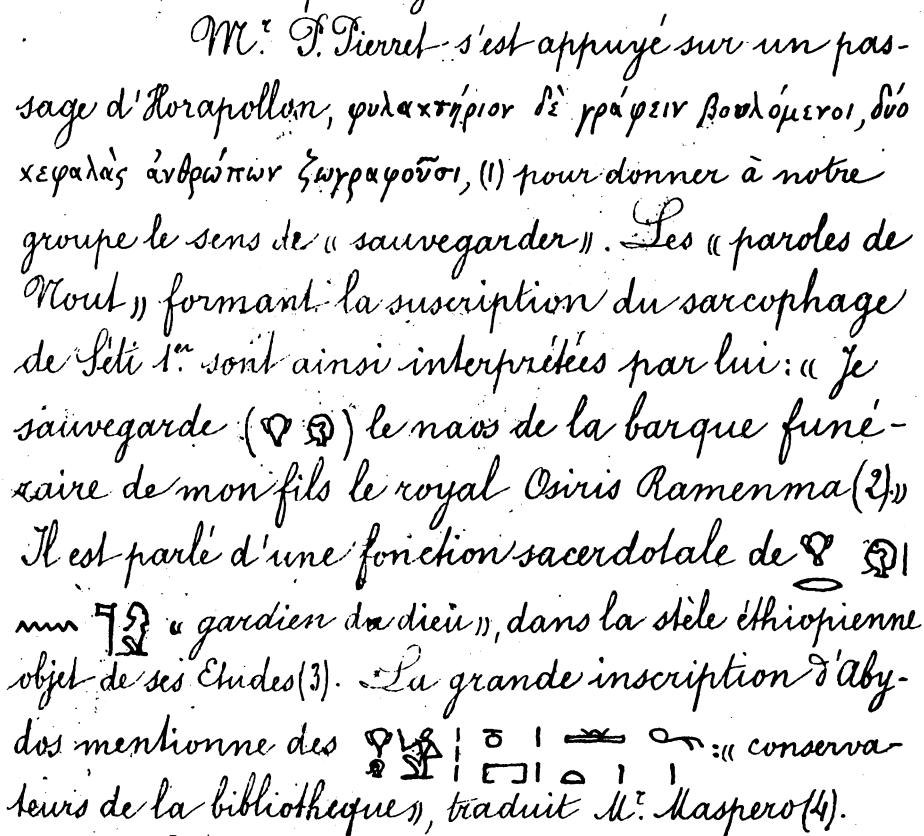 Mr. P. Pierret s'est appuyé sur un pas-
sage d'Horapollon, φυλακτήριον δὲ γράφειν βουλόμενοι, δύο
κεφαλὰς ἀνθρώπων ζωγραφοῦσι, (1) pour donner à notre
groupe le sens de « sauvegarder ». Les « paroles de
Nout » formant la suscription du sarcophage
de Séti 1er sont ainsi interprétées par lui : « Je
sauvegarde ( ) le naos de la barque funé-
raire de mon fils le royal Osiris Ramenma (2). »
Il est parlé d'une fonction sacerdotale de
« gardien du dieu », dans la stèle éthiopienne
objet de ses Etudes (3). La grande inscription d'Aby-
dos mentionne des : « conserva-
teurs de la bibliothèque », traduit Mr. Maspero (4).